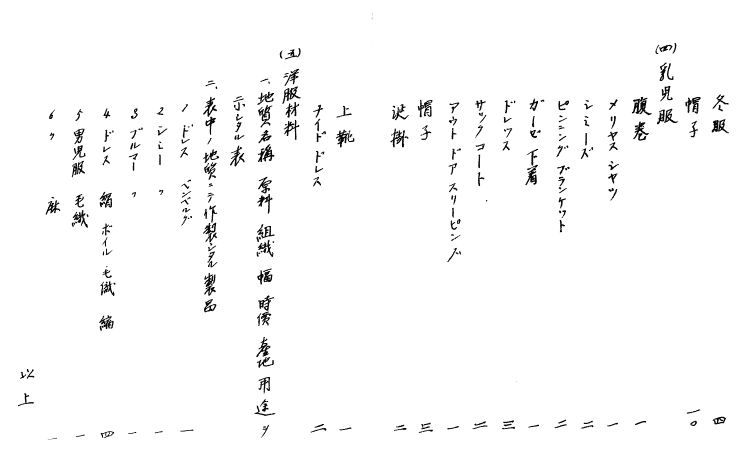 冬服 四
帽子 一〇
(四)乳児服
腹巻 一
メリヤスシャツ 一
シミーズ 二
ピンニングブランケット 二
ガーゼ下着 一
ドレッス 三
サックコート 二
アウトドアスリーピング 一
帽子 三
涎掛 二
上靴 一
ナイトドレス 二
(五)洋服材料
一、地質名稱 原料 組織 幅 時價 産地 用途ヲ 一
示シタル表
二、表中ノ地質ニテ作製シタル製品
1 ドレス ベンベルグ 一
2 シミー 〃 一
3 ブルマー 〃 一
4 ドレス 絹 ボイル 毛織 縮 四
5 男児服 毛織 一
6 〃 麻 一
以上